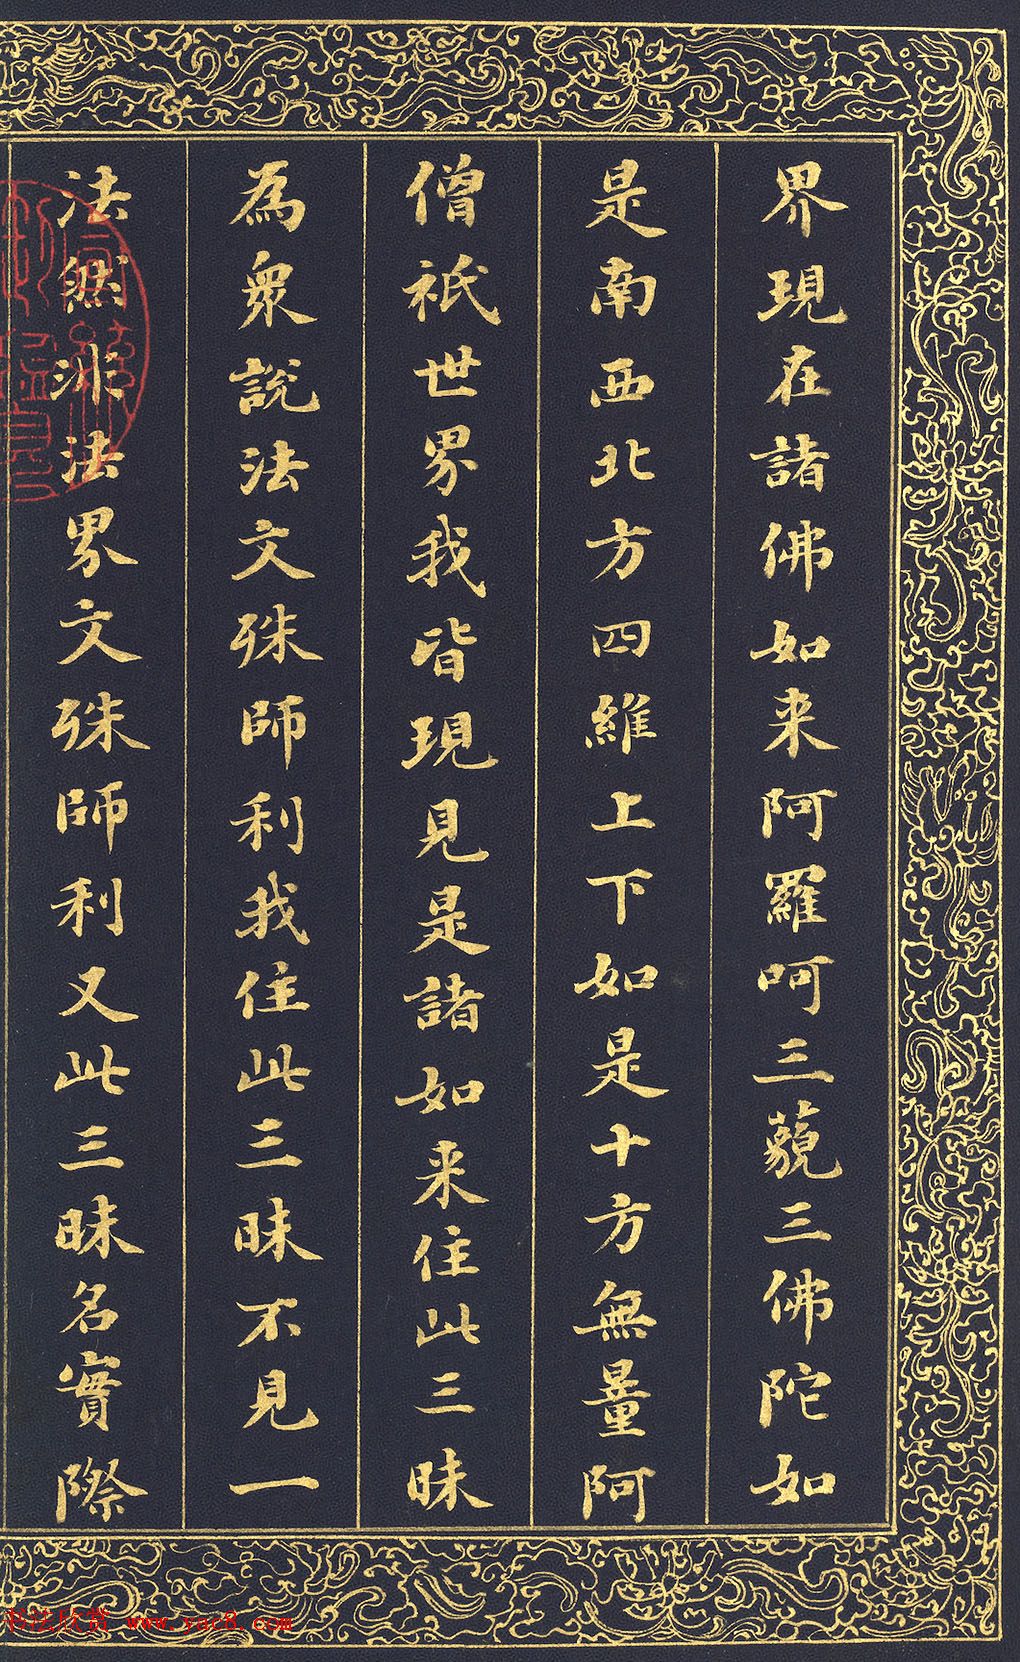 界現在諸佛如来阿羅呵三藐三佛陀如
是南西北方四維上下如是十方無量阿
僧祇世界我皆現見是諸如来住此三昧
為眾說法文殊師利我住此三昧不見一
法然非法界文殊師利又此三昧名實際
书法欣赏 www.yac8.com